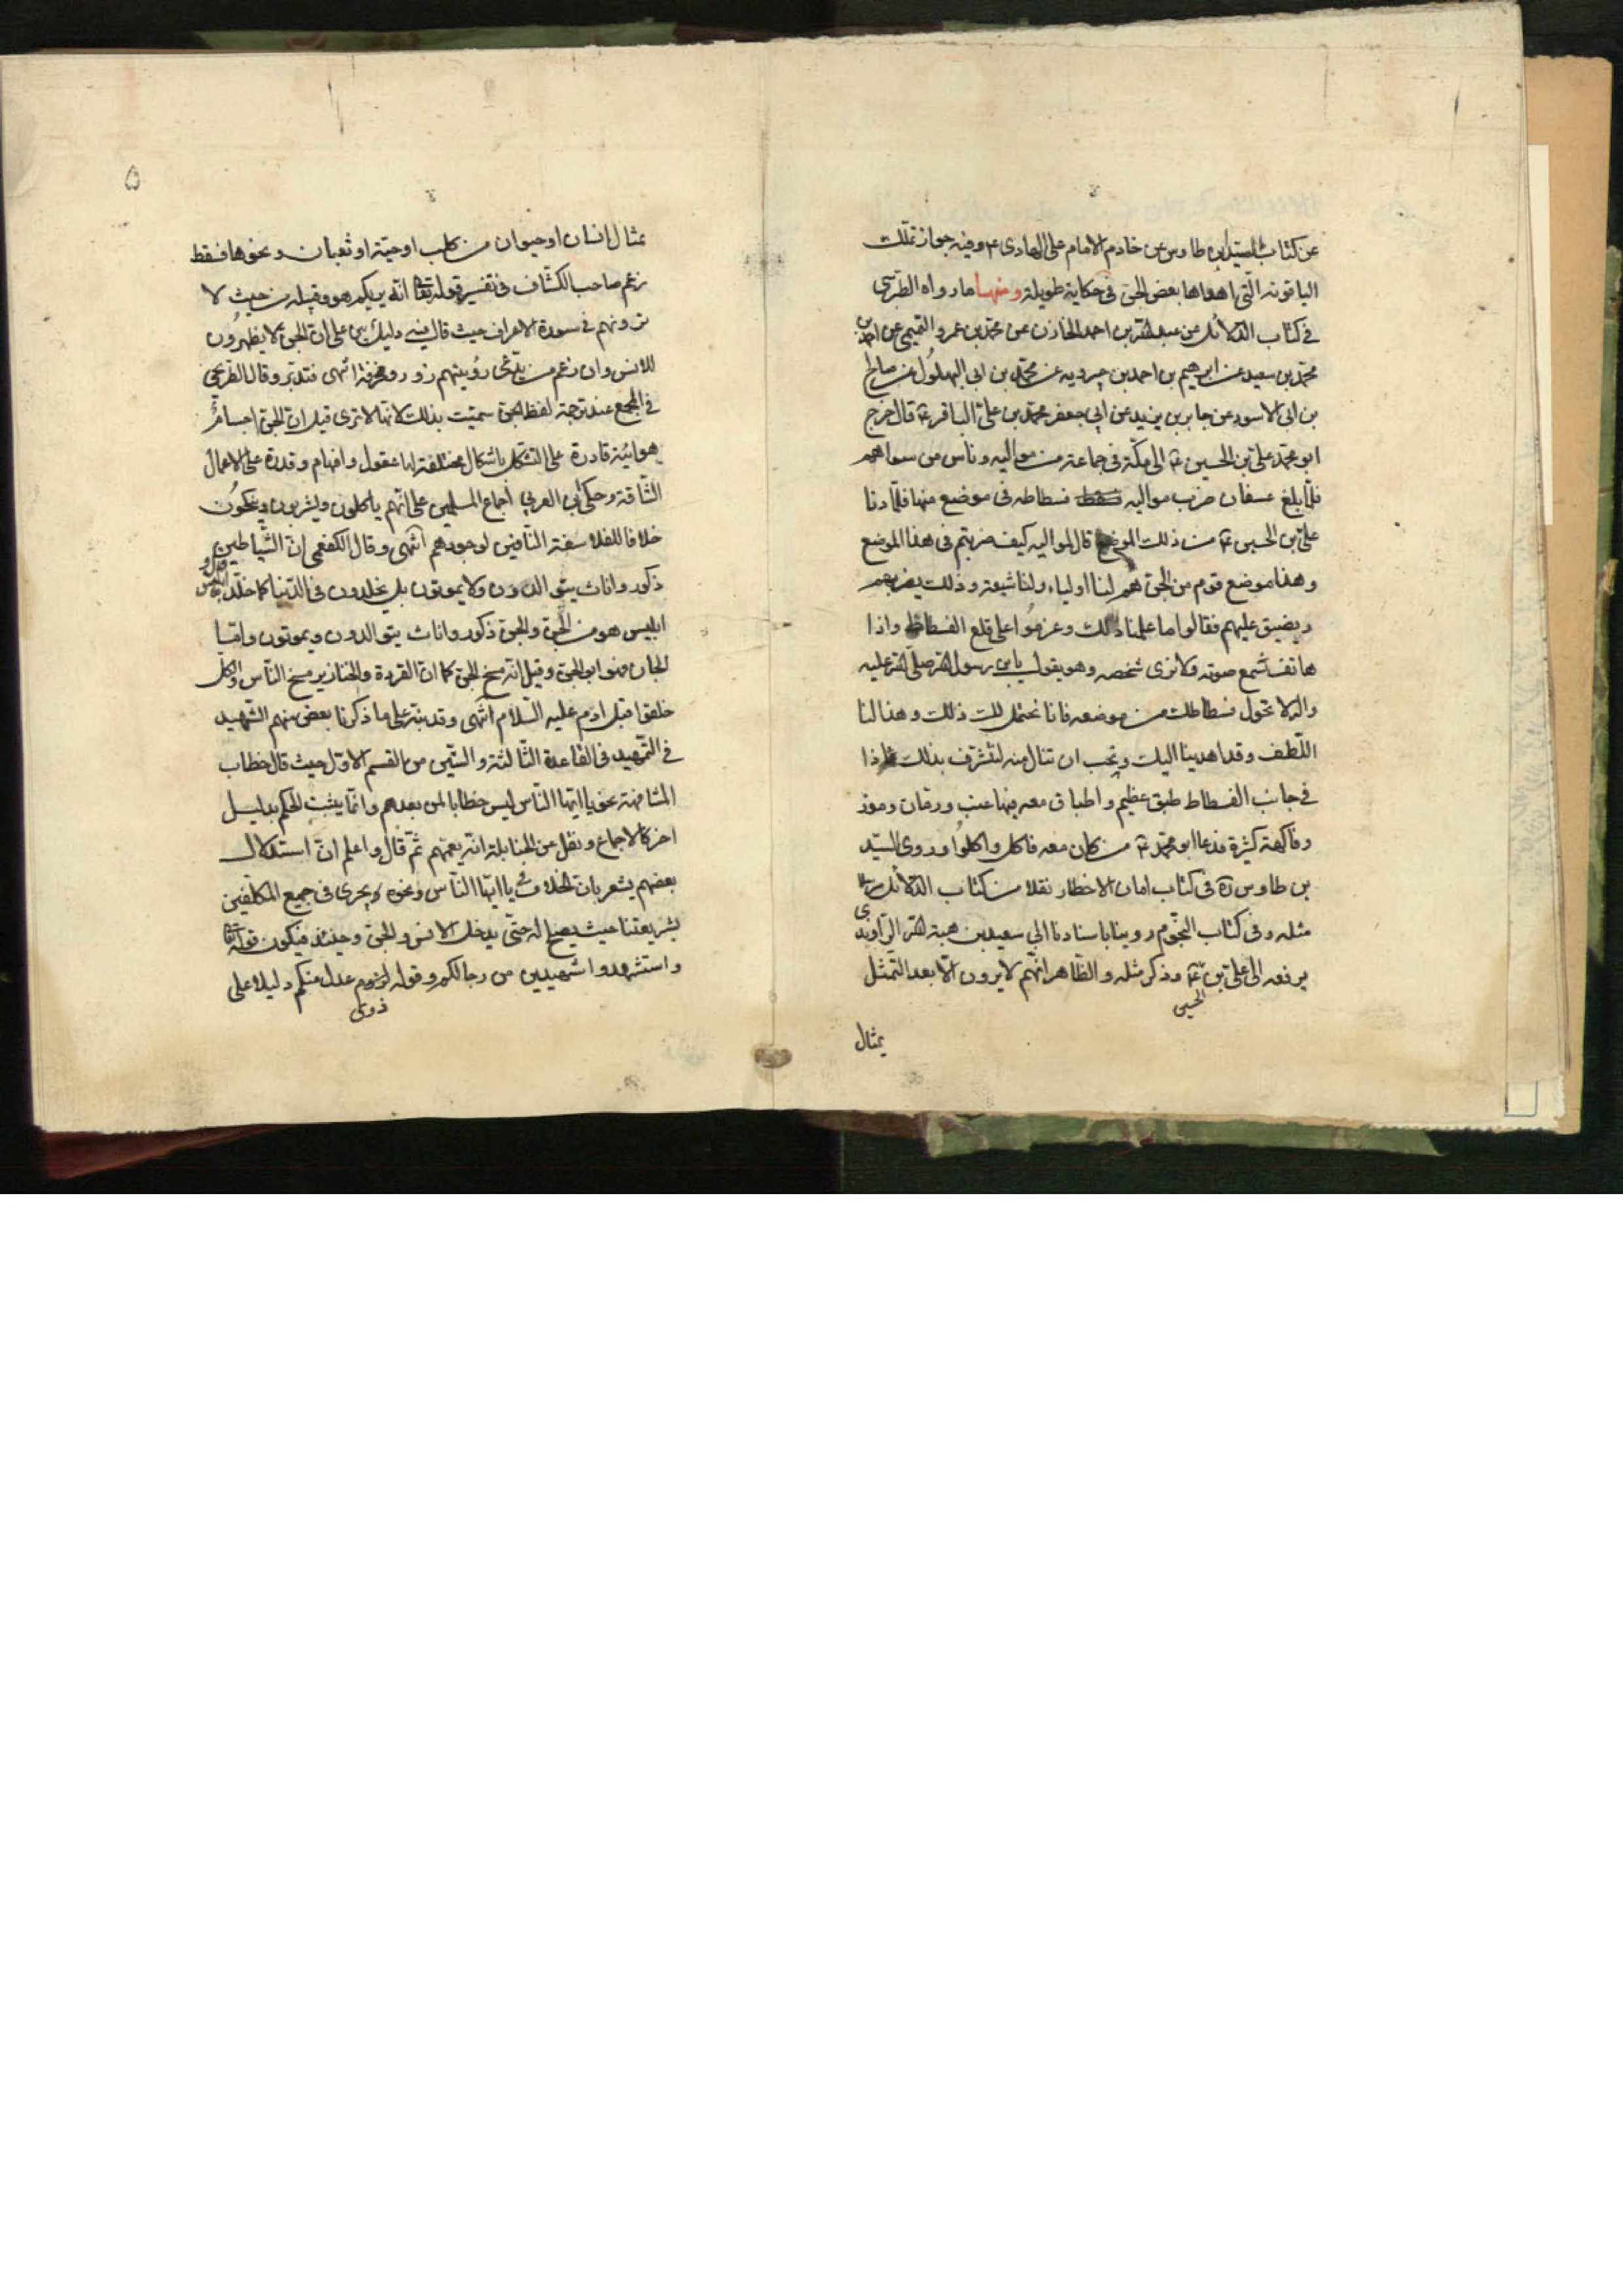 عن كتاب للسيد ابن طاوس عن خادم الامام علي الهادي ع وفيه جواز تملك
الياقوته التي اهداها بعض الجن في حكاية طويلة ومنها ما رواه الطبرسي
في كتاب الدلائل عن عبد الله بن احمد الخازن عن محمد بن عمرو التميمي عن احمد بن
محمد بن سعيد عن ابرهيم بن احمد بن جبرويه عن محمد بن ابي البهلول عن صالح
بن ابي الاسود عن جابر بن يزيد عن ابي جعفر محمد بن علي الباقر ع قال خرج
ابو محمد علي بن الحسين ع الى مكة في جماعة من مواليه وناس من سواهم
فلما بلغ عسفان ضرب مواليه فسطاطه في موضع منها فلما دنا
علي بن الحسين ع من ذلك الموضع قال لمواليه كيف ضربتم في هذا الموضع
وهذا موضع قوم من الجن هم لنا اولياء ولنا شيعة وذلك يضر بهم
ويضيق عليهم فقالوا ما علمنا ذلك وعزموا على قلع الفسطاط واذا
هاتف نسمع صوته ولا نرى شخصه وهو يقول يابن رسول الله صلى الله عليه
واله لا تحول فسطاطك من موضعه فانا نحتمل لك ذلك وهذا لنا
اللطف وقد اهدينا اليك ونحب ان تنال منه لنتشرف بذلك فاذا
في جانب الفسطاط طبق عظيم واطباق معه فيها عنب ورمان وموز
وفاكهة كثيرة فدعا ابو محمد ع من كان معه فاكل واكلوا وروى السيد
بن طاوس ره في كتاب امان الاخطار نقلا من كتاب الدلائل
مثله وفي كتاب النجوم روينا باسنادنا الى سعيد بن هبة الله الراوندي
يرفعه الى علي بن الحسين ع وذكر مثله والظاهر انهم لا يرون الا بعد التمثل
بمثال
۵
بمثال انسان او حيوان من كلب او حية او ثعبان ونحوها فقط
زعم صاحب الكشاف في تفسير قوله تعالى انه يريكم هو وقبيله من حيث لا
ترونهم في سورة الاعراف حيث قال فيه دليل بين على ان الجن لا يظهرون
للانس وان زعم من يدعي رؤيتهم زور ومخرفة انتهى فتدبر وقال الطريحي
في المجمع عند ترجمة لفظ الجن سميت بذلك لانها لا ترى قيل ان الجن اجسام
هوائية قادرة على التشكل باشكال مختلفة لها عقول وافهام وقدرة على الاعمال
الشاقة وحكى ابن العربي اجماع المسلمين على انهم ياكلون ويشربون وينكحون
خلافا للفلاسفة النافين لوجودهم انتهى وقال الكفعمي ان الشياطين
ذكور واناث يتوالدون ولا يموتون بل يخلدون في الدنيا كما خلد ابليس
ابليس هو من الجن والجن ذكور واناث يتوالدون ويموتون واما
الجان فهو ابو الجن وقيل انه مسخ الجن كما ان القردة والخنازير مسخ الناس والكل
خلقوا قبل ادم عليه السلام انتهى وقد نبه على ما ذكرنا بعض منهم الشهيد
في التمهيد في القاعدة الثالثة والستين من القسم الاول حيث قال خطاب
المشافهة نحو يا ايها الناس ليس خطابا لمن بعدهم وانما يثبت الحكم بدليل
اخر كالاجماع ونقل عن الحنابلة انه يعمهم ثم قال واعلم ان استدلال
بعضهم يشعر بان الخلاف في يا ايها الناس ونحوه ويجري في جميع المكلفين
بشريعتنا حيث يصلح له حتى يدخل الانس والجن وحينئذ فيكون قوله تعالى
واستشهدوا شهيدين من رجالكم وقوله ذوي عدل منكم دليلا على